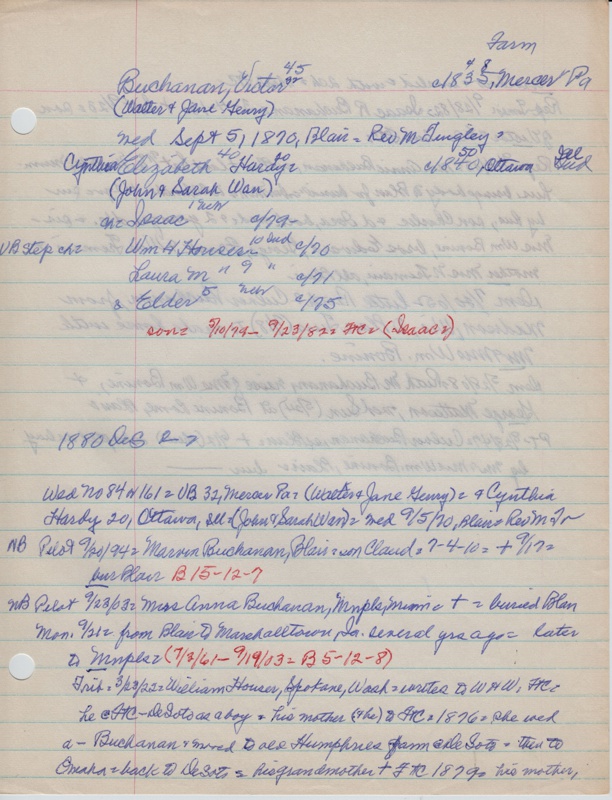 Farm
Buchanan, Victor 45 c/1835, 48 Mercer Pa
(Walter & Jane Henry)
wed Sept 5, 1870, Blair = Rev M Tingley =
Cynthia Elizabeth 40 Hardy 20 = c/1840, 50 Ottawa Ill
(John & Sarah Wan)
ch = Isaac 1 NEB c/79 -
VB Step ch = Wm H Houser = 10 Ind c/70
Laura M " 9 " c/71
& Elder 5 NEB c/75
son = 5/10/79 - 9/23/82 = FtC = (Isaac =)
1880 DeS 2-7
Wed No 84 N 161 = VB 32, Mercer Pa = (Walter & Jane Henry) = & Cynthia
Hardy 20, Ottawa, Ill = (John & Sarah Wan) = wed 9/5/70, Blair = Rev M T~
NB Pilot 9/20/94 = Marvin Buchanan, Blair = son Claud = 7-4-10 = + 9/17 =
bur Blair B 15-12-7
NB Pilot 9/23/03 = Miss Anna Buchanan, Mnpls, Minn = + = buried Blair
Mon. 9/21 = from Blair to Marshalltown, Ia. several yrs ago = later
to Mnpls = (7/2/61 - 9/19/03 = B 5-12-8)
Trib = 3/23/22 = William Houser, Spokane, Wash = writes to WHW, FtC =
he @ FtC - DeSoto as a boy = his mother (& he) to FtC = 1876 = she wed
a - Buchanan & moved to old Humphries farm @ DeSoto = then to
Omaha = back to DeSoto = his grandmother + FtC 1879 = his mother,